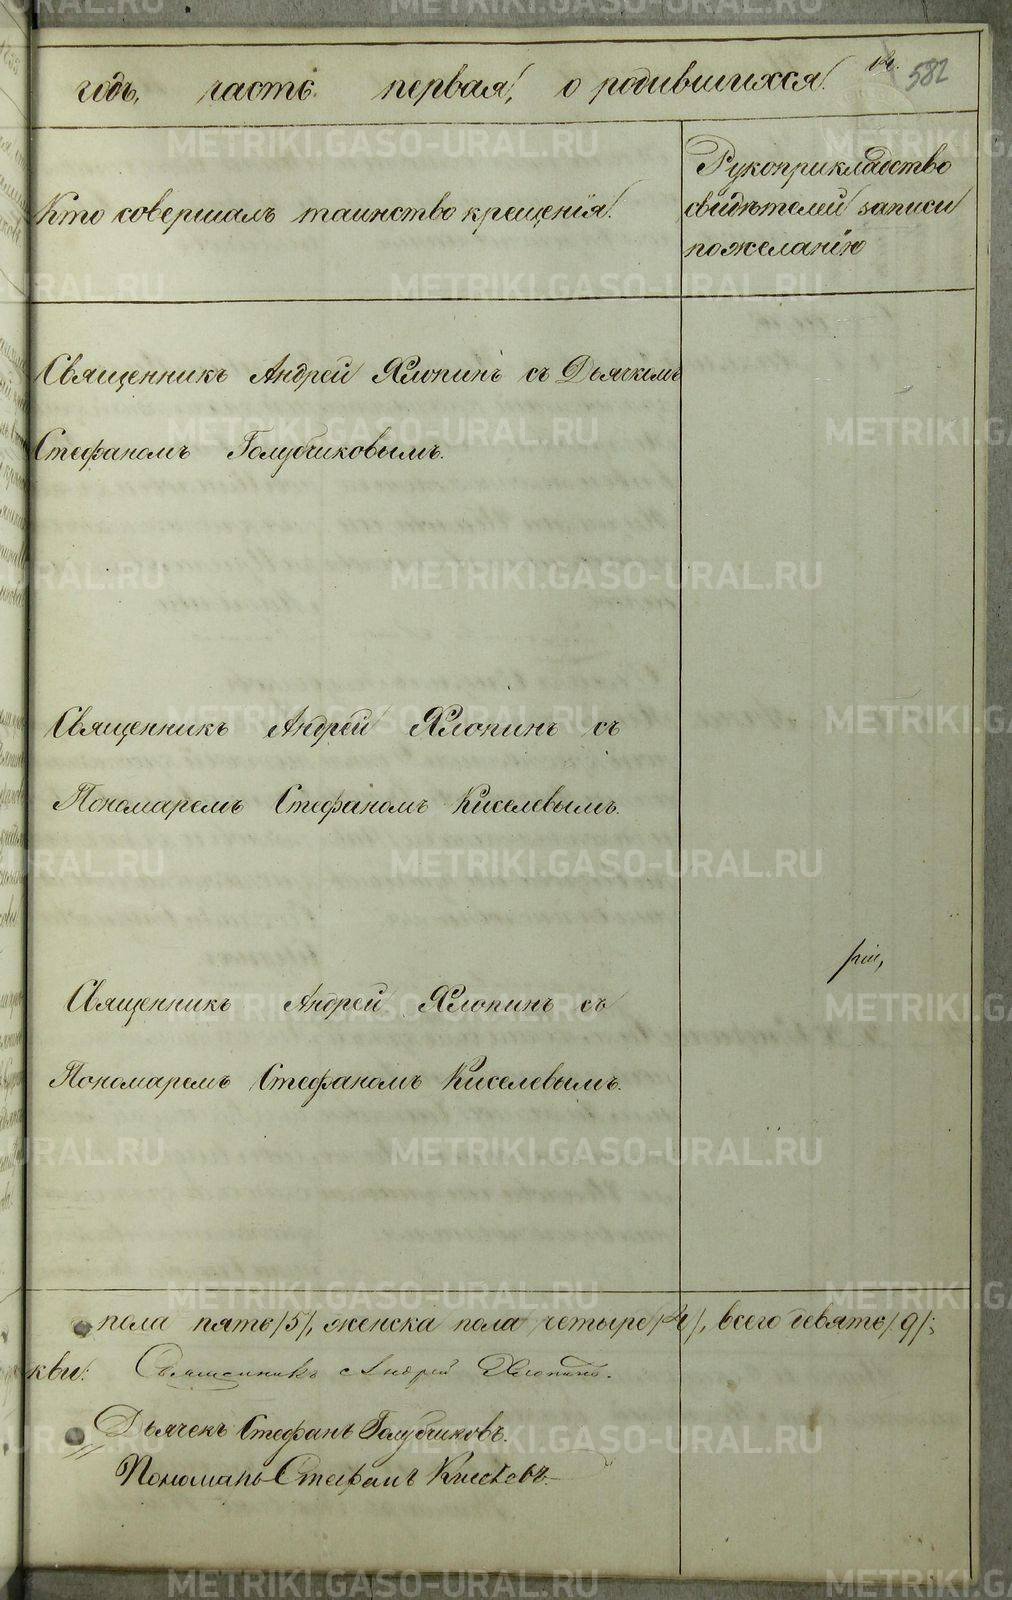 годъ, часть первая, о родившихся.
582
Кто совершалъ таинство крещенія.
Рукоприкладство
свидѣтелей записи
по желанію
Священникъ Андрей Хлопинъ съ Дьячкомъ
Стефаномъ Голубчиковымъ.
Священникъ Андрей Хлопинъ съ
Пономаремъ Стефаномъ Киселевымъ.
Священникъ Андрей Хлопинъ съ
Пономаремъ Стефаномъ Киселевымъ.
пола пять /5/, женска пола четыре /4/, всего девять /9/;
кви: Священникъ Андрей Хлопинъ.
Дьячекъ Стефанъ Голубчиковъ.
Пономарь Стефанъ Киселевъ.
METRIKI.GASO-URAL.RU